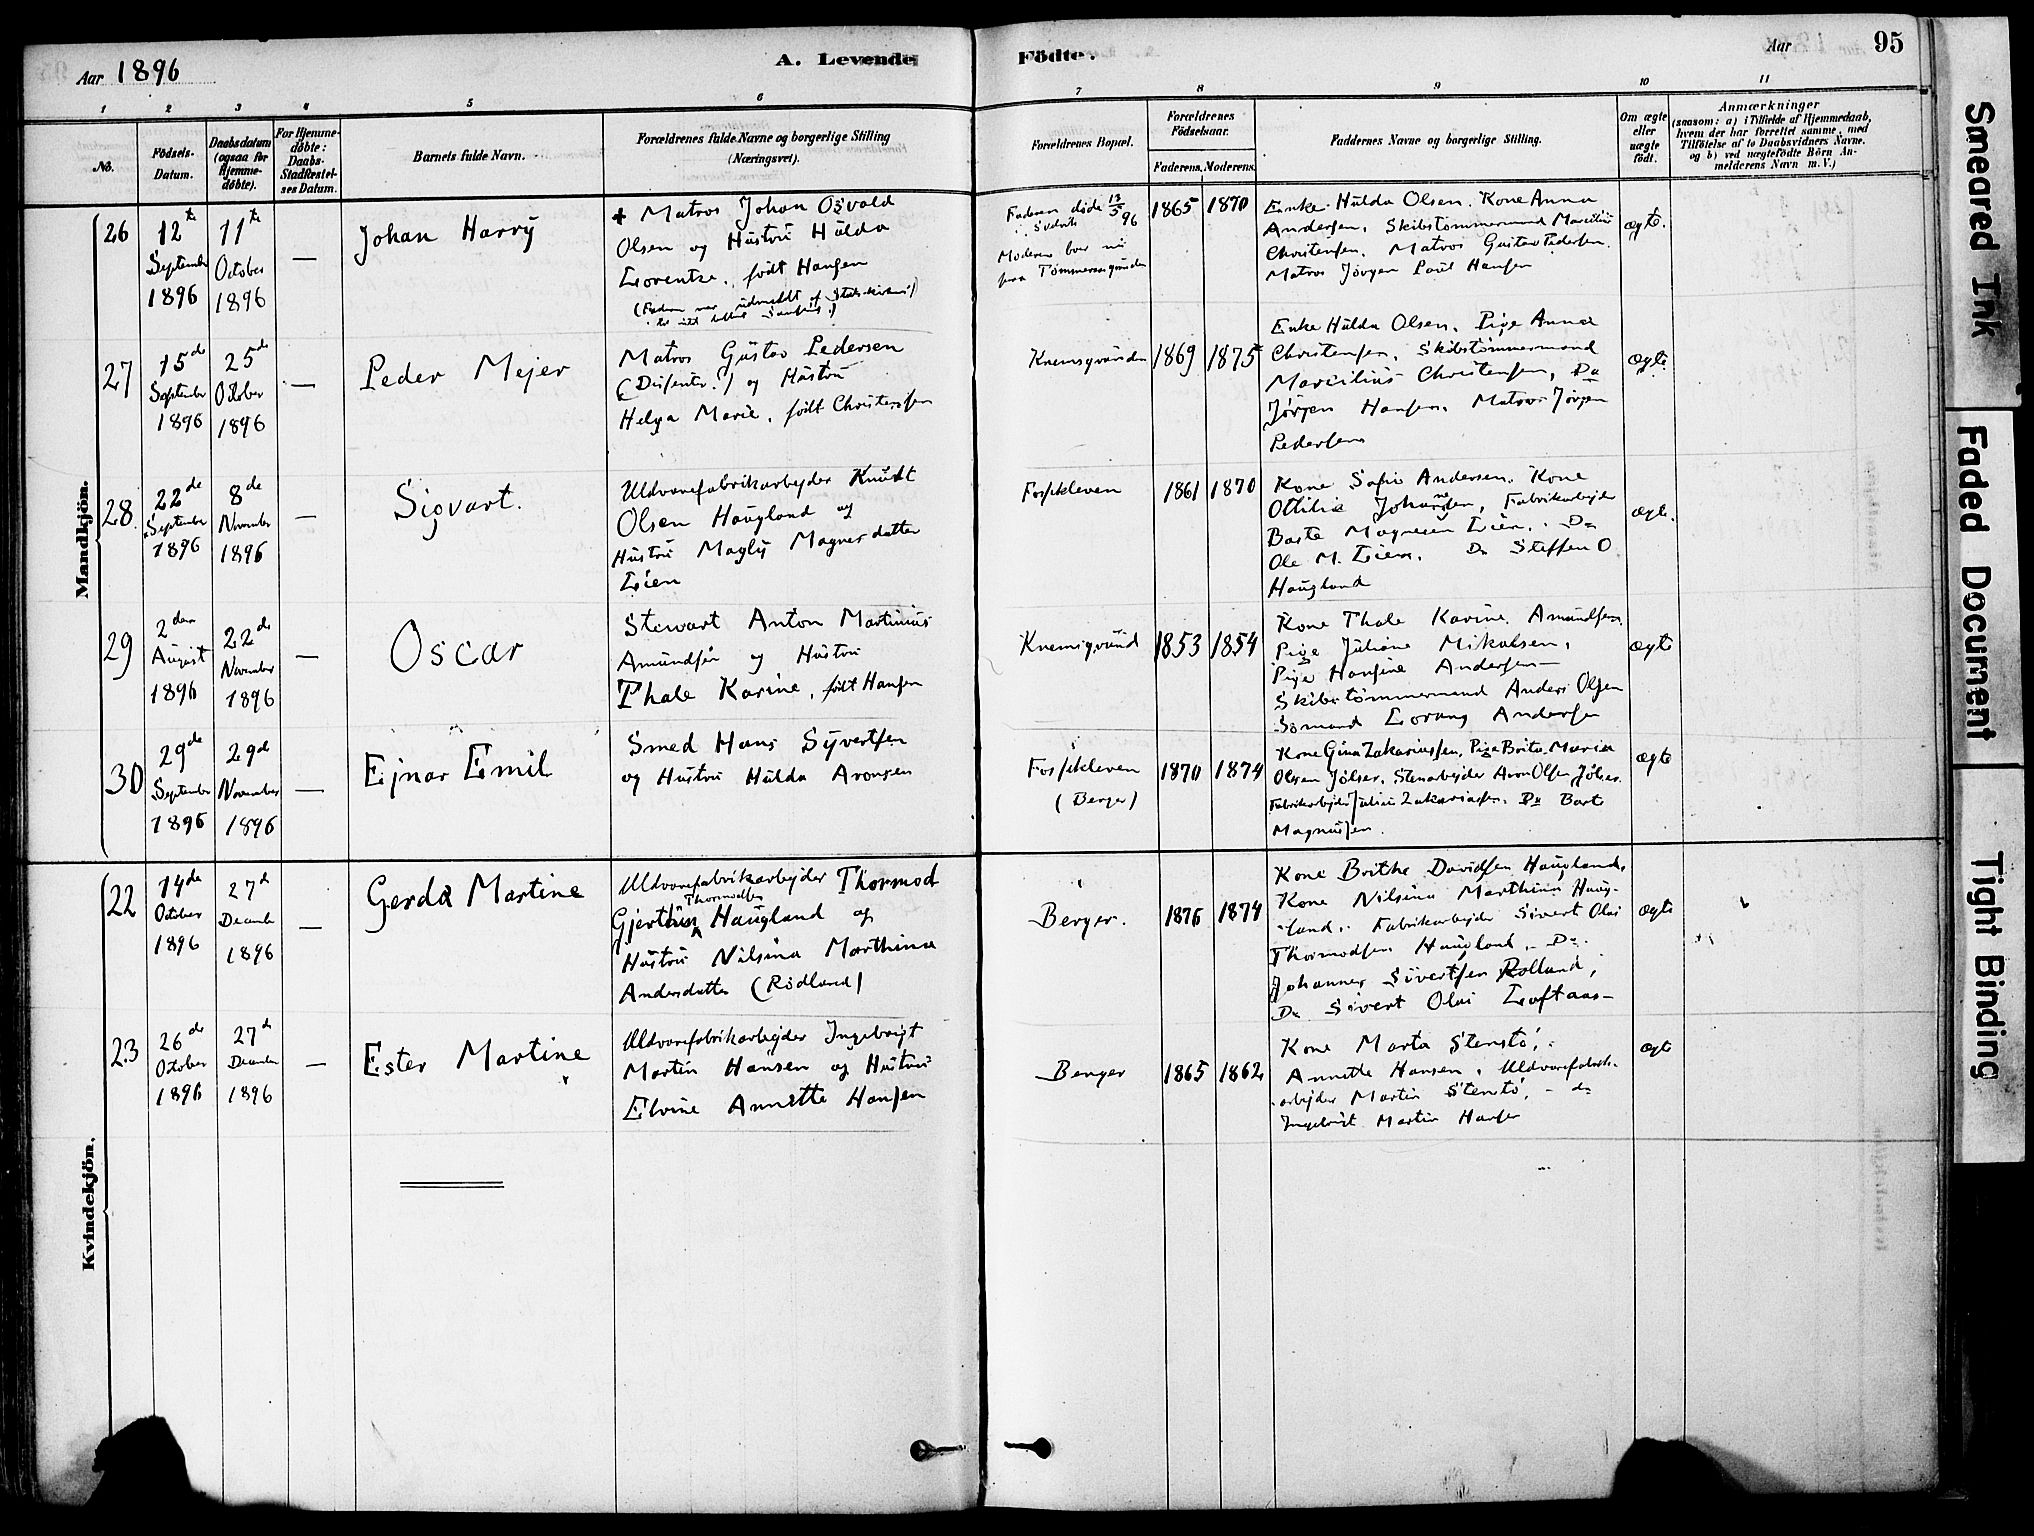 Aar 1896
A. Levende Födte.
Aar
95
1 2 3 4 5 6 7 8 9 10 11
No.
Födsels-
Datum.
Daabsdatum
(ogsaa for
Hjemme-
döbte).
For Hjemme-
döbte:
Daabs-
Stadfæstel-
ses Datum.
Barnets fulde Navn.
Forældrenes fulde Navne og borgerlige Stilling
(Næringsvei).
Forældrenes Bopæl.
Forældrenes
Födselsaar.
Faderens. Moderens.
Faddernes Navne og borgerlige Stilling.
Om ægte
eller
uægte
født.
Anmærkninger
(saasom: a) i Tilfælde af Hjemmedaab,
hvem der har forrettet samme, med
Tilföielse af to Daabsvidners Navne,
og b) ved uægtefödte Börn An-
melderens Navn m. V.)
Mandkjön.
26
12te
September
1896
11te
October
1896
—
Johan Harry
+ Matros Johan Osvald
Olsen og Hustru Hulda
Lorentze, født Hansen
(Faderen var udmeldt af Statskirken)
Faderen døde 13/5 96
Moderen bor nu
paa Tømmeraasgrunden
1865
1870
Enke Hulda Olsen. Kone Anna
Andersen, Skibstømmermand Marcilius
Christensen, Matros Gustav Pedersen.
Matros Jørgen Paul Hansen
ægte.
27
15de
September
1896
25de
October
1896
—
Peder Mejer
Matros Gustav Pedersen
(Dissenter.) og Hustru
Helga Marie, født Christensen
Knemsgrunden
1869
1875
Enke Hulda Olsen, Pige Anna
Christensen, Skibstømmermand
Marcilius Christensen, Do
Jørgen Hansen, Matros Jørgen
Pedersen
ægte.
28.
22de
September
1896
8de
November
1896
—
Sigvart.
Uldvarefabrikarbejder Knudt
Olsen Haugland og
Hustru Magly Magnesdatter
Lien
Fosskleven
1861
1870
Kone Sofie Andersen. Kone
Ottilia Johansen, Fabrikarbejder
Baste Magnesen Lien, Do
Ole M. Lien, Do Steffen O
Haugland
ægte.
29
2den
August
1896
22de
November
1896
—
Oscar
Stewart Anton Martinius
Amundsen og Hustru
Thale Karine, født Hansen
Knemsgrund
1853
1854
Kone Thale Karine Amundsen.
Pige Juliane Mikalsen,
Pige Hansine Andersen—
Skibstømmermand Anders Olsen
Sømand Lorang Andersen
ægte
30
29de
September
1896
29d
November
1896
—
Ejnar Emil
Smed Hans Syvertsen
og Hustru Hulda Aronsen
Fosskleven
(Berger)
1870
1874
Kone Gina Zakariassen, Pige Brita Maria
Olsen Jølser, Stenarbejder Aron Olsen Jølser
Fabrikarbejder Julius Zakariassen. Do Bart
Magnussen.
ægte
Kvindekjön.
22
14de
October
1896
27d
December
1896
—
Gerda Martine
Uldvarefabrikarbejder Thormod
Thormodsen
Gjertsen Haugland og
Hustru Nilsina Marthina
Andersdatter (Rødland)
Berger.
1876
1874
Kone Brithe Davidsen Hauglands
Kone Nilsina Marthina Haug-
land, Fabrikarbejder Sivert Olai
Thormodsen Haugland, Do.
Johannes Sivertsen Rolland,
Do Sivert Olai Loftaas—
ægte
23
26de
October
1896
27d
December
1896
—
Ester Martine
Uldvarefabrikarbejder Ingebrigt
Martin Hansen og Hustru
Elvine Annette Hansen
Berger
1865
1862
Kone Marta Stenstø,
Annette Hansen, Uldvarefabrik-
arbejder Martin Stenstø, — do
Ingebrigt Martin Hansen
ægte
Smeared Ink
Faded Document
Tight Binding